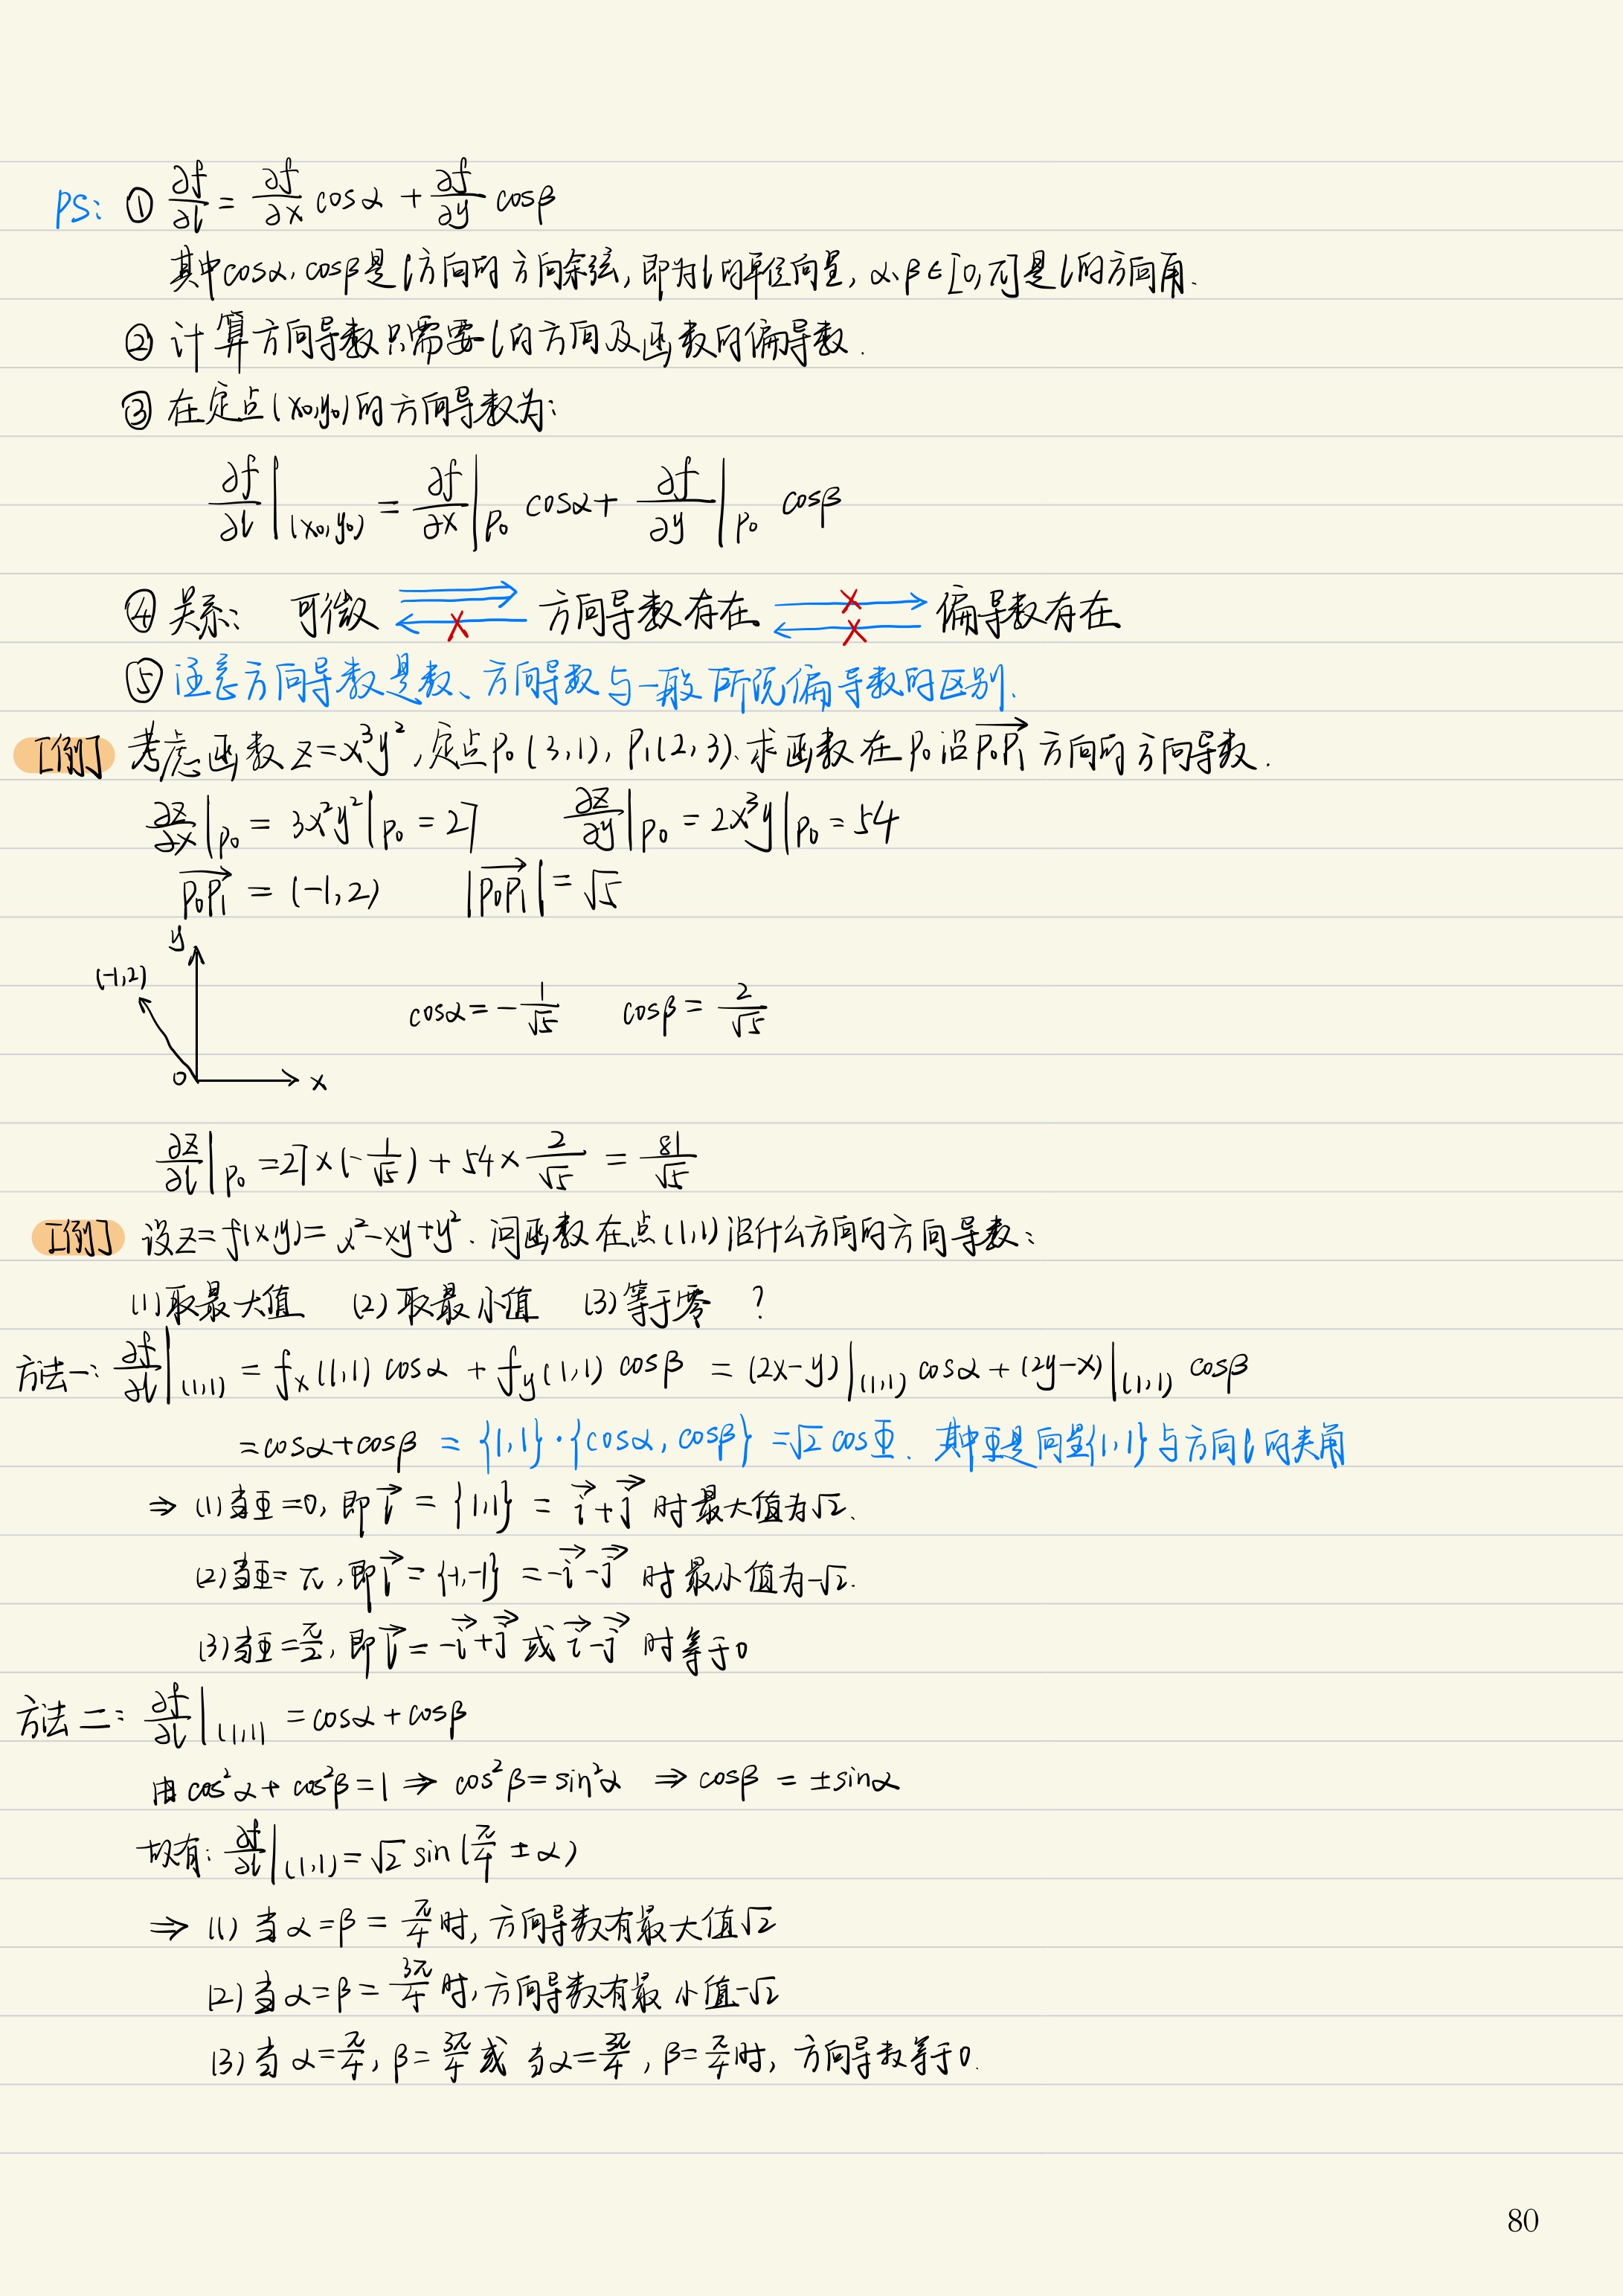 PS: ① ∂f/∂l = ∂f/∂x cosα + ∂f/∂y cosβ
其中cosα, cosβ是l方向的方向余弦, 即为l的单位向量, α、β∈[0,π]是l的方向角.
② 计算方向导数只需要l的方向及函数的偏导数.
③ 在定点(x₀,y₀)的方向导数为:
∂f/∂l|(x₀,y₀) = ∂f/∂x|P₀ cosα + ∂f/∂y|P₀ cosβ
④ 关系: 可微 方向导数存在 偏导数存在
⑤ 注意方向导数是数、方向导数与一般所说偏导数的区别.
[例] 考虑函数 z=x³y², 定点P₀(3,1), P₁(2,3). 求函数在P₀沿P₀P₁方向的方向导数.
∂z/∂x|P₀ = 3x²y²|P₀ = 27 ∂z/∂y|P₀ = 2x³y|P₀ = 54
P₀P₁ = (-1,2) |P₀P₁| = √5
y
(-1,2)
cosα = -1/√5 cosβ = 2/√5
O x
∂z/∂l|P₀ = 27×(-1/√5) + 54×2/√5 = 81/√5
[例] 设z=f(xy)= x²-xy+y². 问函数在点(1,1)沿什么方向的方向导数:
(1)取最大值 (2)取最小值 (3)等于零 ?
方法一: ∂f/∂l|(1,1) = fx(1,1) cosα + fy(1,1) cosβ = (2x-y)|(1,1) cosα + (2y-x)|(1,1) cosβ
= cosα+cosβ = {1,1}·{cosα, cosβ} = √2 cosΦ. 其中Φ是向量{1,1}与方向l的夹角
⇒ (1)当Φ=0, 即l⃗ = {1,1} = i⃗+j⃗ 时最大值为√2.
(2)当Φ=π, 即l⃗ = {-1,-1} = -i⃗-j⃗ 时最小值为-√2.
(3)当Φ=π/2, 即l⃗ = -i⃗+j⃗ 或 i⃗-j⃗ 时等于0
方法二: ∂f/∂l|(1,1) = cosα + cosβ
由 cos²α + cos²β = 1 ⇒ cos²β = sin²α ⇒ cosβ = ±sinα
故有: ∂f/∂l|(1,1) = √2 sin(π/4 ± α)
⇒ (1) 当α=β=π/4时, 方向导数有最大值√2
(2)当α=β=3π/4时, 方向导数有最小值-√2
(3)当α=π/4, β=3π/4 或 当α=3π/4, β=π/4时, 方向导数等于0.
80